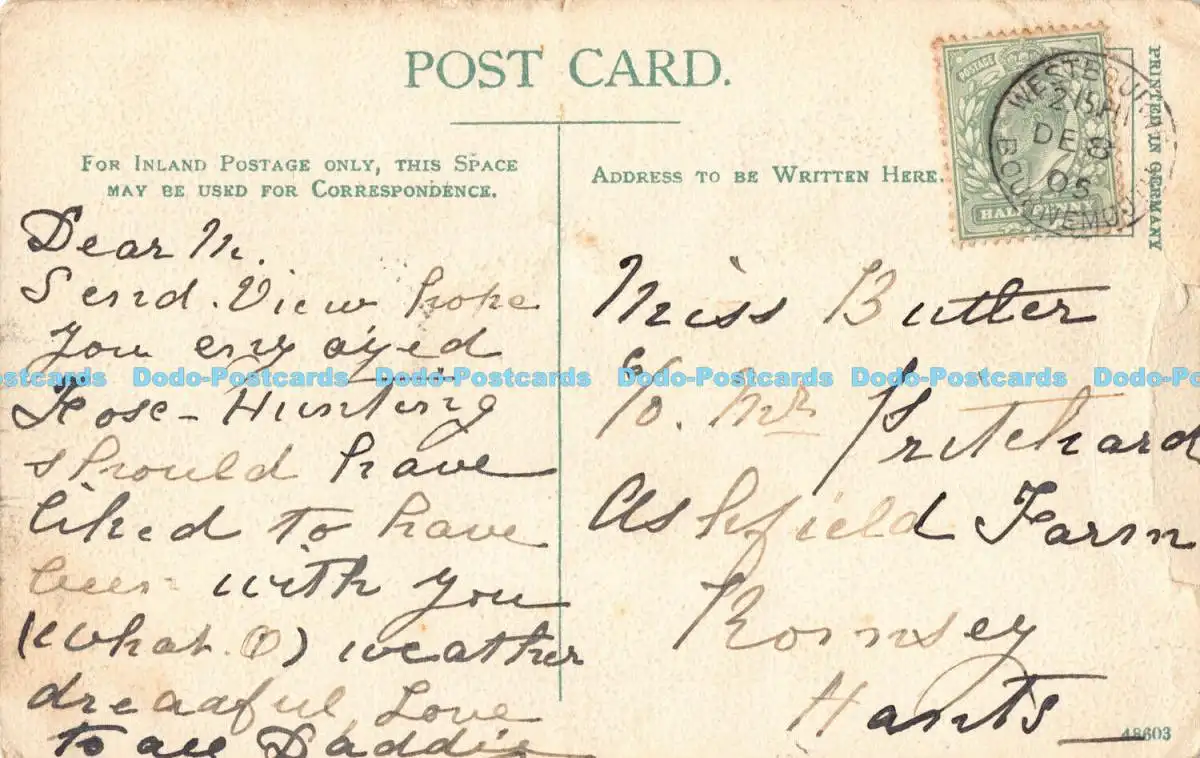 POST CARD.
FOR INLAND POSTAGE ONLY, THIS SPACE
MAY BE USED FOR CORRESPONDENCE.
Dear M.
Send. View hope
You enjoyed
Fose-Hunting
should have
liked to have
been with you
(what. O) weather
dreadful Love
to all Daddie
ADDRESS TO BE WRITTEN HERE.
POSTAGE
HALFPENNY
WESTBOURNE
DE 8
05
BOURNEMOUTH
PRINTED IN GERMANY
Miss Butler
c/o. Mr Pritchard
Ashfield Farm
Romsey
Hants
48603
Dodo-Postcards Dodo-Postcards Dodo-Postcards Dodo-Postcards Dodo-Postcards